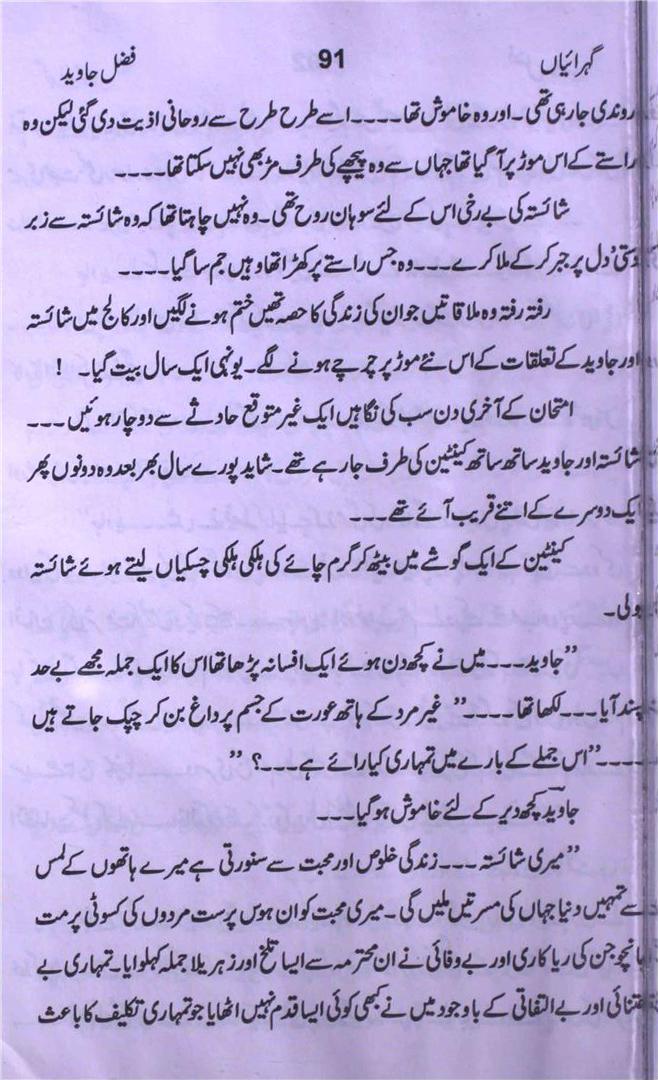 گہرائیاں 91 فضل جاوید
روندی جا رہی تھی۔ اور وہ خاموش تھا۔۔۔۔ اسے طرح طرح سے روحانی اذیت دی گئی لیکن وہ
راستے کے اس موڑ پر آ گیا تھا جہاں سے وہ پیچھے کی طرف مڑ بھی نہیں سکتا تھا۔۔۔۔
شائستہ کی بے رخی اس کے لئے سوہان روح تھی۔ وہ نہیں چاہتا تھا کہ وہ شائستہ سے زبر
دستی' دل پر جبر کر کے ملا کرے۔۔۔ وہ جس راستے پر کھڑا تھا وہیں جم سا گیا۔۔۔۔
رفتہ رفتہ وہ ملاقاتیں جو ان کی زندگی کا حصہ تھیں ختم ہونے لگیں اور کالج میں شائستہ
اور جاوید کے تعلقات کے اس نئے موڑ پر چرچے ہونے لگے۔ یونہی ایک سال بیت گیا۔۔ !
امتحان کے آخری دن سب کی نگاہیں ایک غیر متوقع حادثے سے دو چار ہوئیں۔۔۔
شائستہ اور جاوید ساتھ ساتھ کینٹین کی طرف جا رہے تھے۔ شاید پورے سال بھر بعد وہ دونوں پھر
ایک دوسرے کے اتنے قریب آئے تھے۔۔۔
کینٹین کے ایک گوشے میں بیٹھ کر گرم چائے کی ہلکی ہلکی چسکیاں لیتے ہوئے شائستہ
بولی۔
”جاوید۔۔۔ میں نے کچھ دن ہوئے ایک افسانہ پڑھا تھا اس کا ایک جملہ مجھے بے حد
پسند آیا۔۔۔ لکھا تھا۔۔۔۔“ غیر مرد کے ہاتھ عورت کے جسم پر داغ بن کر چپک جاتے ہیں
۔۔۔۔“اس جملے کے بارے میں تمہاری کیا رائے ہے۔۔۔؟ “
جاوید کچھ دیر کے لئے خاموش ہو گیا۔۔۔
”میری شائستہ۔۔۔ زندگی خلوص اور محبت سے سنورتی ہے میرے ہاتھوں کے لمس
سے تمہیں دنیا جہاں کی مسرتیں ملیں گی۔ میری محبت کو ان ہوس پرست مردوں کی کسوٹی پر مت
جانچو جن کی ریاکاری اور بے وفائی نے ان محترمہ سے ایسا تلخ اور زہریلا جملہ کہلوایا۔ تمہاری بے
اعتنائی اور بے التفاتی کے باوجود میں نے کبھی کوئی ایسا قدم نہیں اٹھایا جو تمہاری تکلیف کا باعث